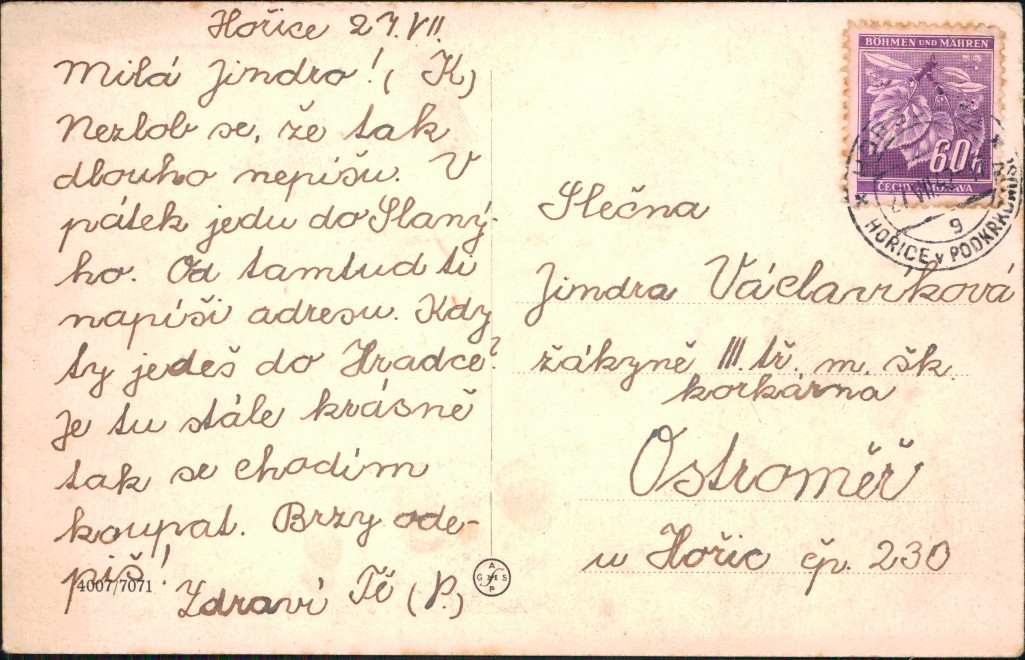 Hořice 27.VII
Milá Jindro! (K)
Nezlob se, že tak
dlouho nepíšu. V
pátek jedu do Slaný-
ho. Od tamtud ti
napíši adresu. Kdy
ty jedeš do Hradce?
Je tu stále krásně
tak se chodím
koupat. Brzy ode-
piš!
Zdraví Tě (P.)
4007/7071
A
G S
P
BÖHMEN UND MÄHREN
60h
ČECHY A MORAVA
HOŘICE v PODKRKONOŠ
9
Slečna
Jindra Václavíková
žákyně III. tř. m. šk.
korkárna
Ostroměř
u Hořic čp. 230